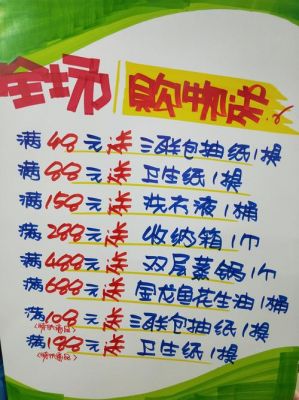 全场购书啦
满48元送三联包抽纸1提
满88元送卫生纸1提
满158元送洗衣液1桶
满288元送收纳箱1个
满488元送双层蒸锅1个
满688元送金龙鱼花生油1桶
满108元送三联包抽纸1提
满188元送卫生纸1提